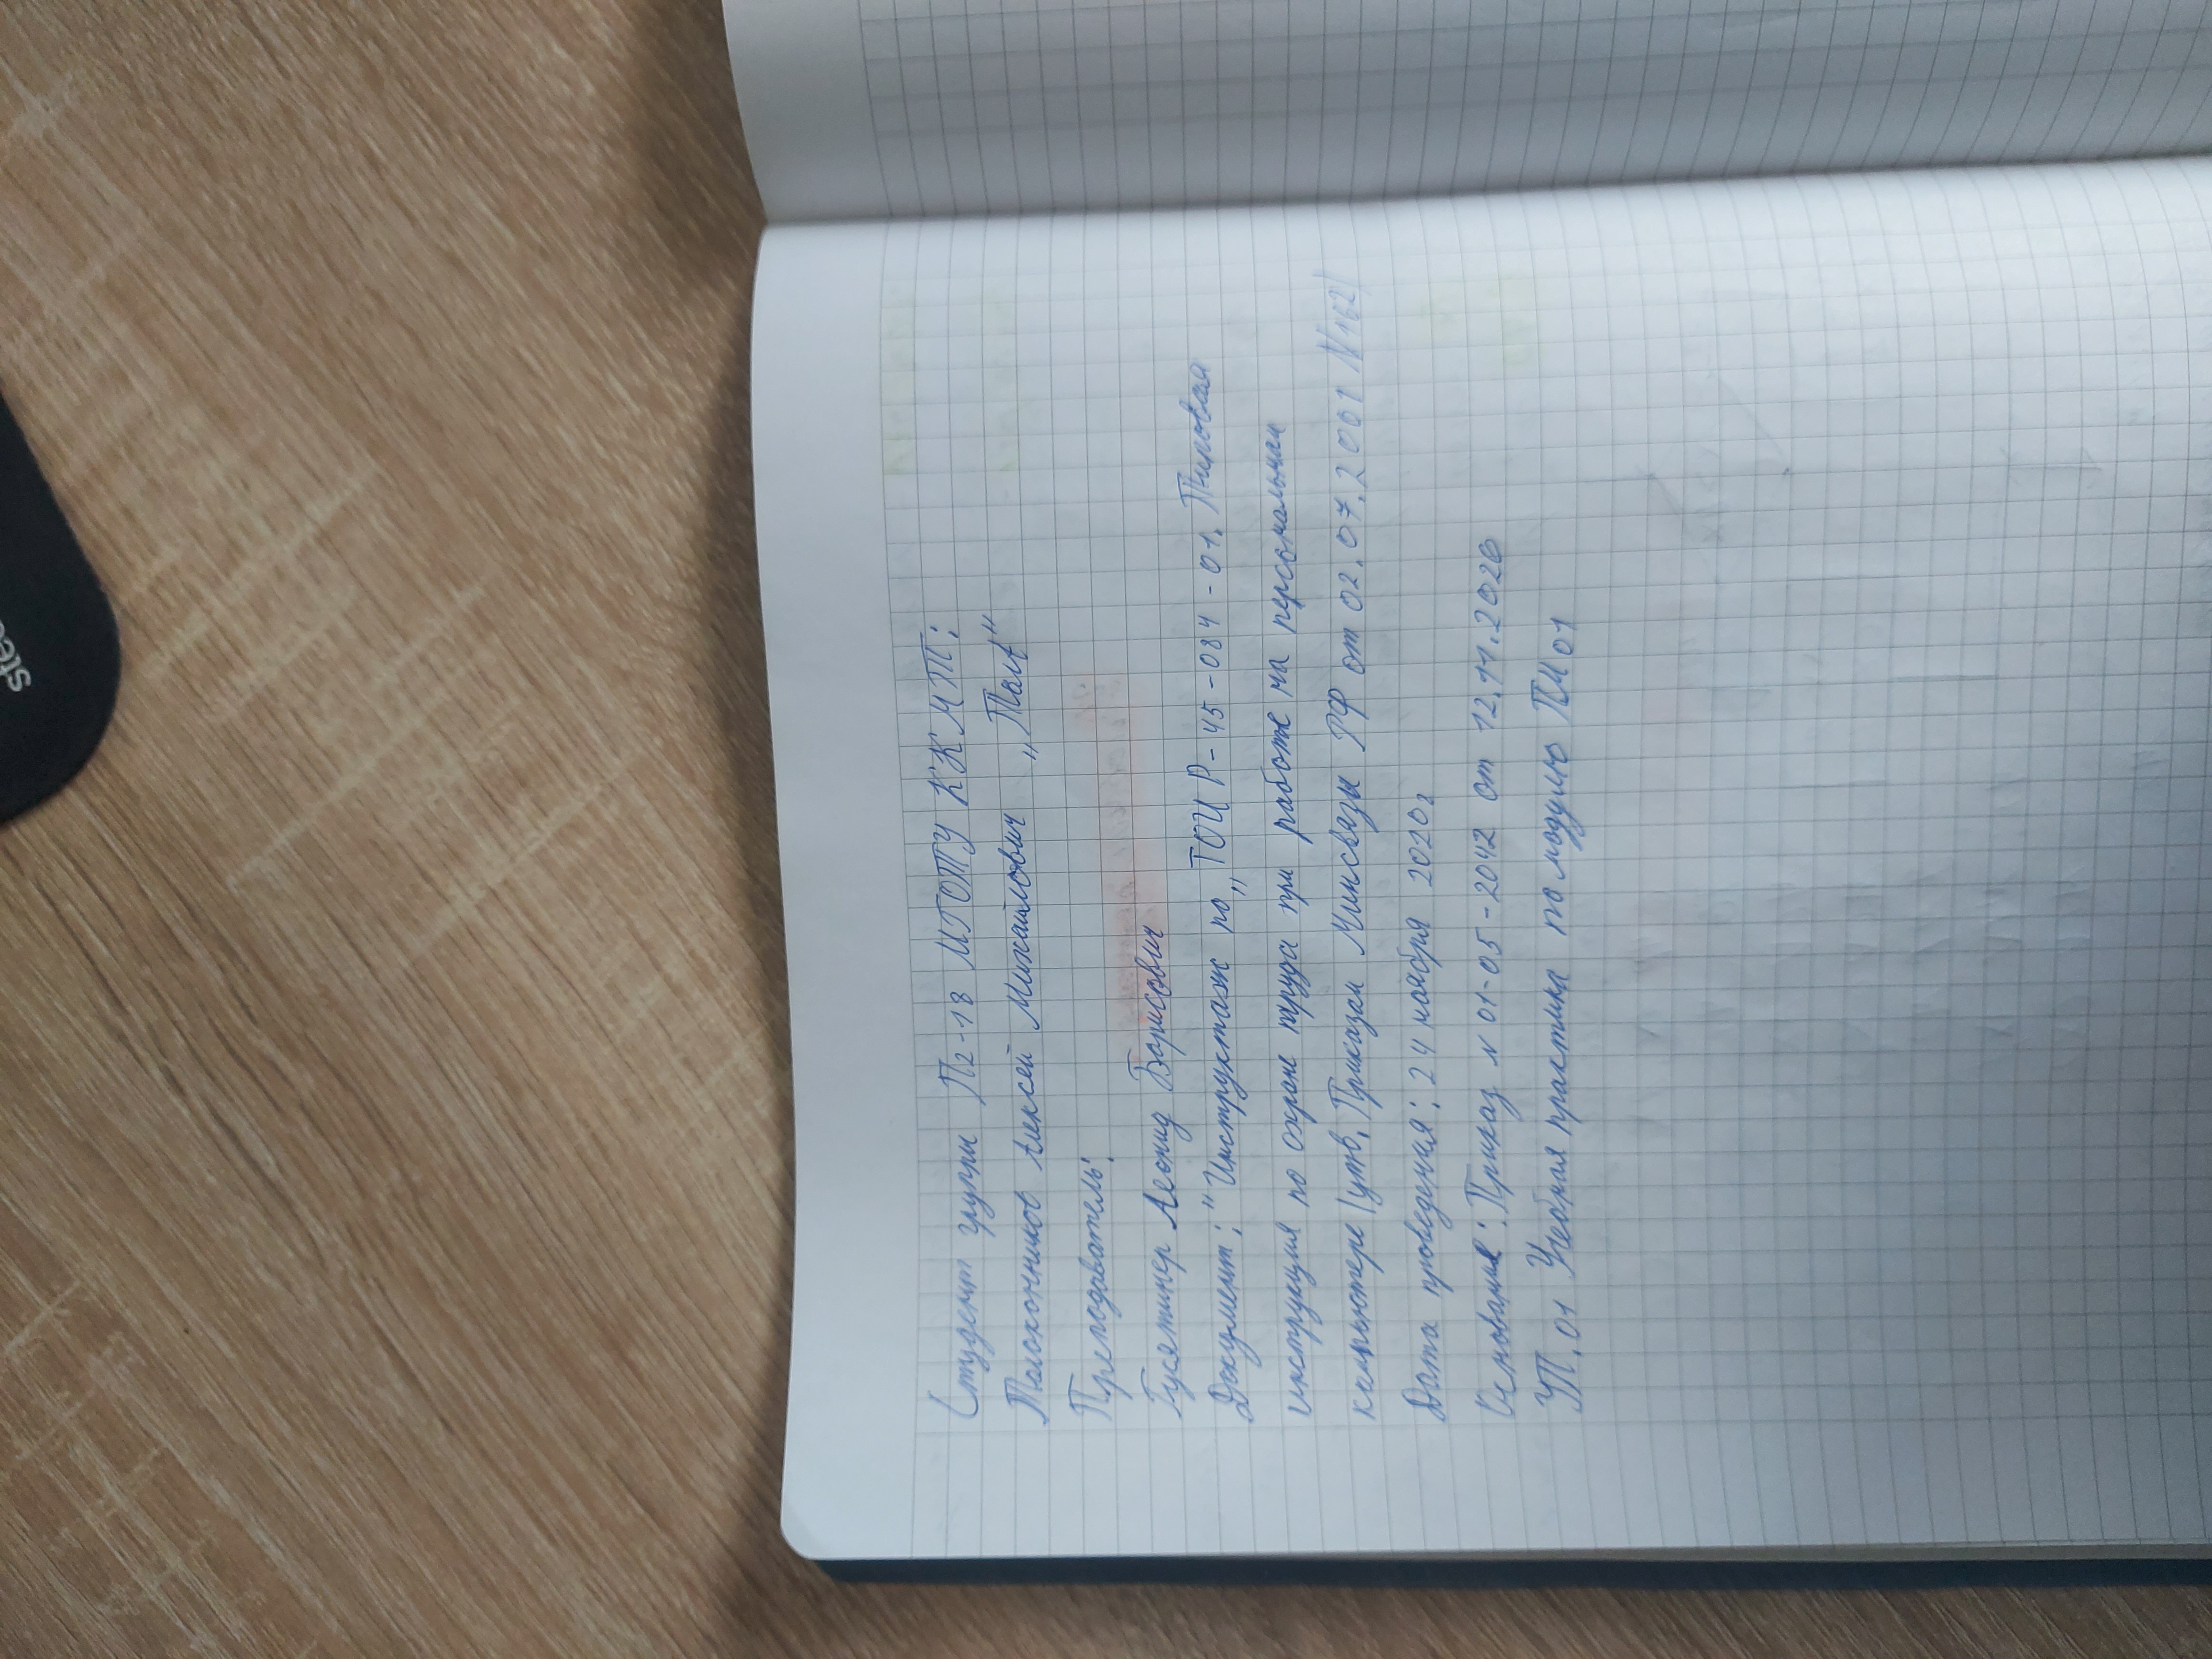 stee
Студент группы П2-18 МГОТУ ККМТ:
Толоконников Алексей Михайлович „Tolt“
Преподаватель:
Гусятинер Леонид Борисович
Документ: "Инструктаж по „ТОИ Р-45-084-01. Типовая
инструкция по охране труда при работе на персональном
компьютере (утв. Приказом Минсвязи РФ от 02.07.2001 N162)
Дата проведения: 24 ноября 2020г
Основание: Приказ N 01-05-2042 от 12.11.2020
УП.01 Учебная практика по модулю ПМ 01